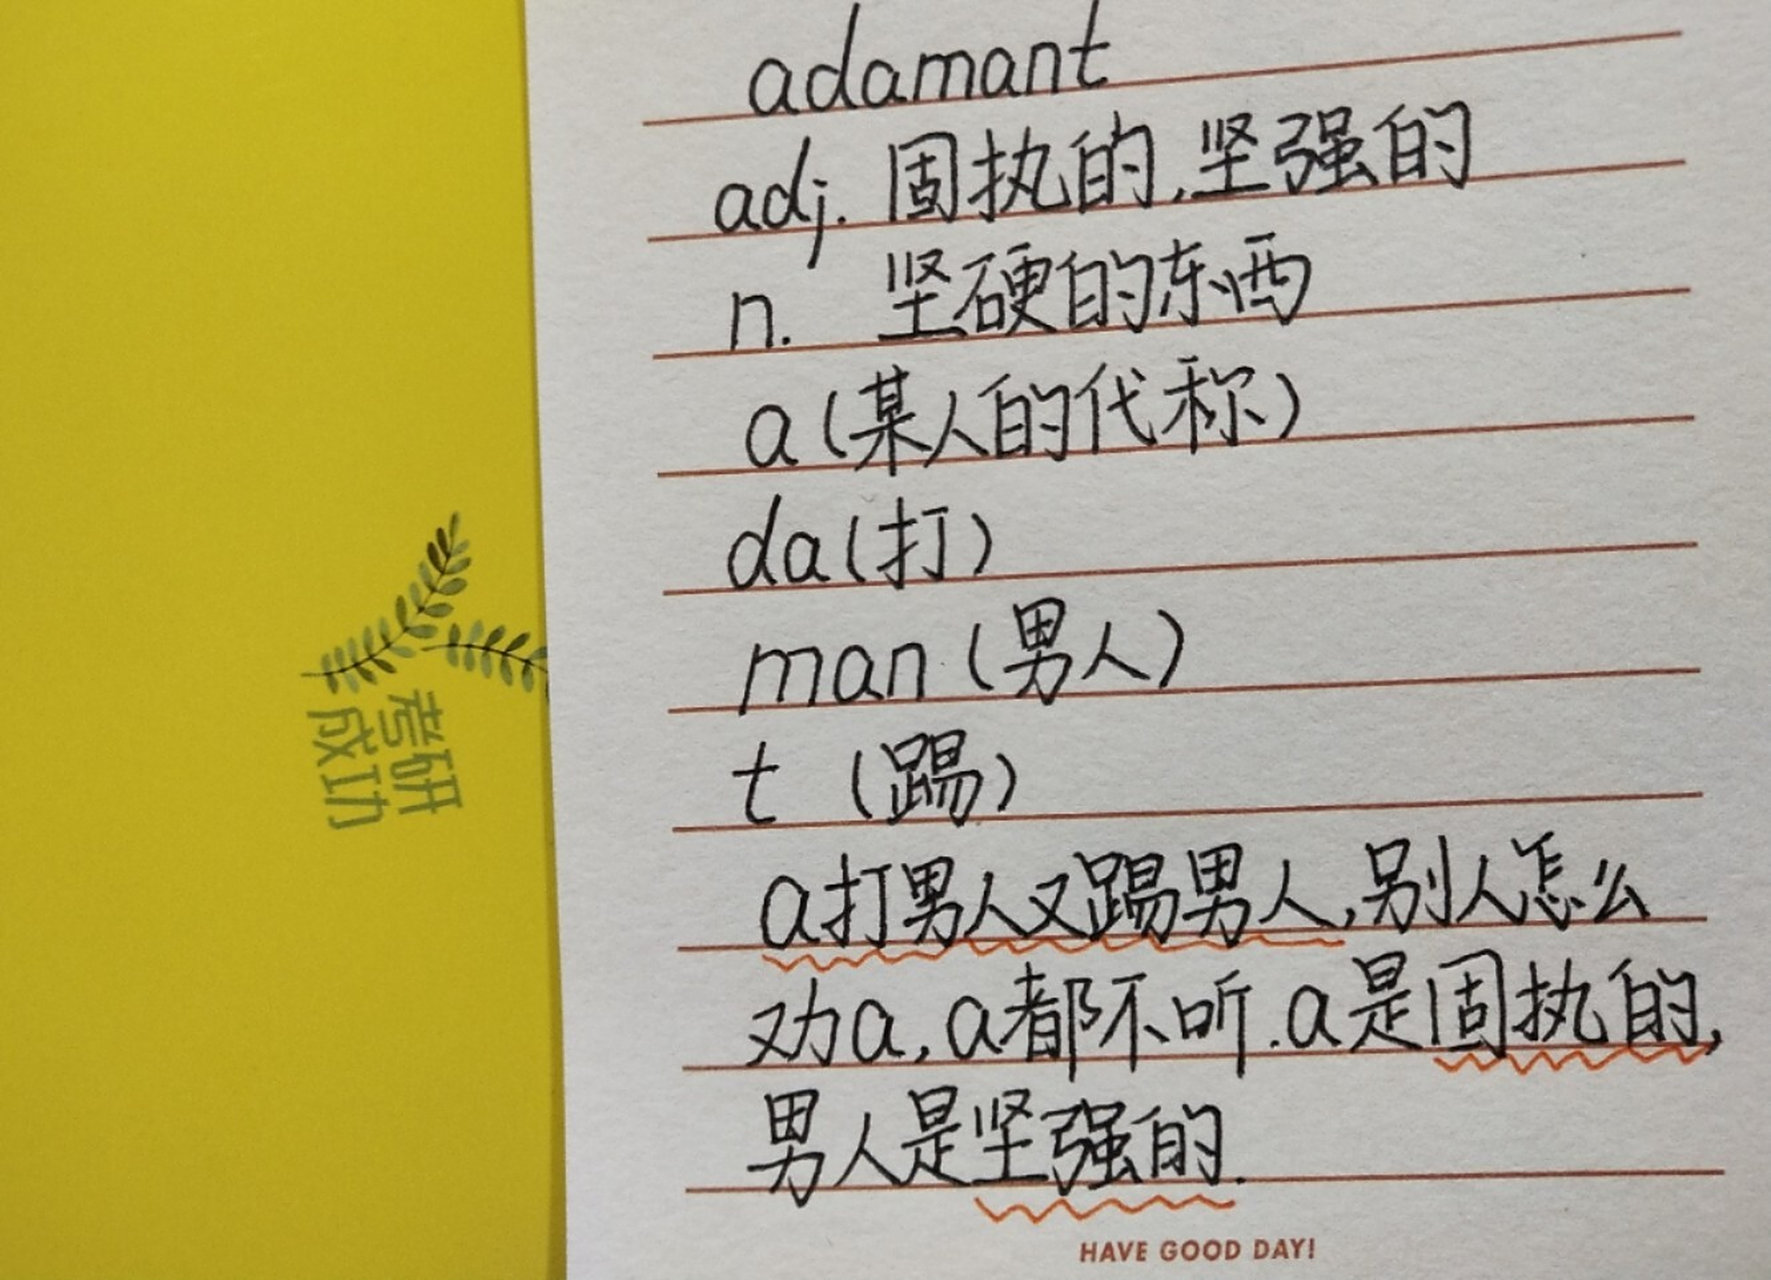 adamant
adj. 固执的,坚强的
n. 坚硬的东西
a(某人的代称)
da(打)
man(男人)
t (踢)
a打男人又踢男人,别人怎么
劝a,a都不听.a是固执的,
男人是坚强的.
HAVE GOOD DAY!
考研
成功